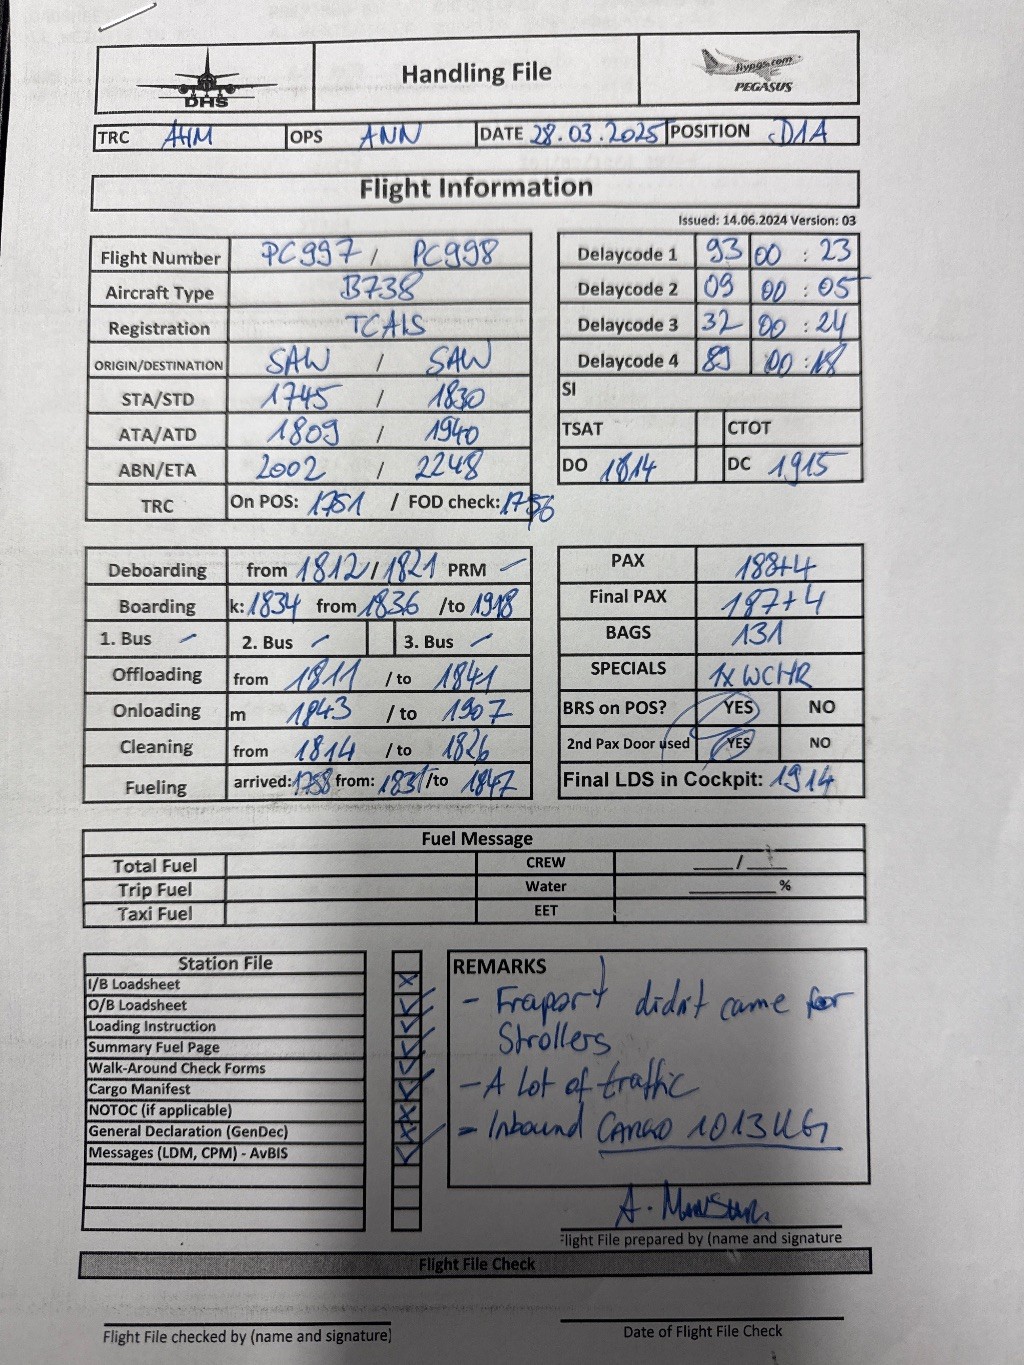 DHS
Handling File
flypgs.com
PEGASUS
TRC AHM OPS ANN DATE 28.03.2025 POSITION D1A
Flight Information
Issued: 14.06.2024 Version: 03
Flight Number PC997 / PC998
Aircraft Type B738
Registration TCAIS
ORIGIN/DESTINATION SAW / SAW
STA/STD 1745 / 1830
ATA/ATD 1809 / 1940
ABN/ETA 2002 / 2248
TRC On POS: 1751 / FOD check: 1756
Delaycode 1 93 00 : 23
Delaycode 2 09 00 : 05
Delaycode 3 32 00 : 24
Delaycode 4 89 00 : 18
SI
TSAT CTOT
DO 1814 DC 1915
Deboarding from 1812 / 1821 PRM –
Boarding k: 1834 from 1836 /to 1918
1. Bus – 2. Bus – 3. Bus –
Offloading from 1811 / to 1841
Onloading m 1843 / to 1907
Cleaning from 1814 / to 1826
Fueling arrived: 1758 from: 1831 /to 1847
PAX 188+4
Final PAX 187+4
BAGS 131
SPECIALS 1x WCHR
BRS on POS? YES NO
2nd Pax Door used YES NO
Final LDS in Cockpit: 1914
Fuel Message
Total Fuel CREW ____/____
Trip Fuel Water ________%
Taxi Fuel EET
Station File
I/B Loadsheet
O/B Loadsheet
Loading Instruction
Summary Fuel Page
Walk-Around Check Forms
Cargo Manifest
NOTOC (if applicable)
General Declaration (GenDec)
Messages (LDM, CPM) - AvBIS
REMARKS
- Fraport didn't came for
Strollers
- A lot of traffic
- Inbound CARGO 1013 KG
A. Mansur
Flight File prepared by (name and signature
Flight File Check
Flight File checked by (name and signature)
Date of Flight File Check